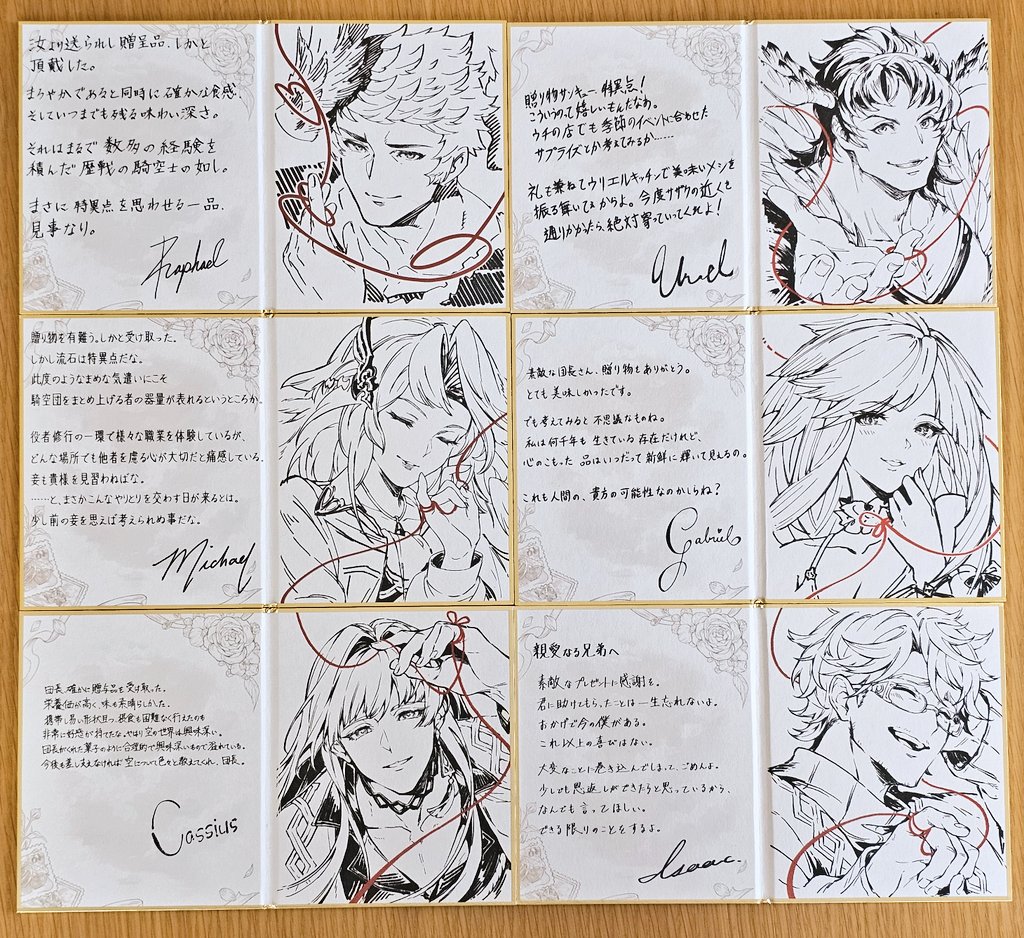 汝より送られし贈呈品、しかと
頂戴した。
まろやかであると同時に確かな食感、
そしていつまでも残る味わい深さ。
それはまるで数多の経験を
積んだ歴戦の騎空士の如し。
まさに特異点を思わせる一品、
見事なり。
Raphael
贈り物サンキュー特異点!
こういうのって嬉しいもんだなぁ。
ウチの店でも季節のイベントに合わせた
サプライズとか考えてみるか……
礼も兼ねてウリエルキッチンで美味いメシを
振る舞いてぇからよ。今度サザクの近くを
通りかかったら、絶対寄っていってくれよ!
Uriel
贈り物を有難う。しかと受け取った。
しかし流石は特異点だな。
此度のようなまめな気遣いにこそ
騎空団をまとめ上げる者の器量が表れるというところか。
役者修行の一環で様々な職業を体験しているが、
どんな場所でも他者を慮る心が大切だと痛感している。
妾も貴様を見習わねばな。
……と、まさかこんなやりとりを交わす日が来るとは。
少し前の妾を思えば考えられぬ事だな。
Michael
素敵な団長さん、贈り物をありがとう。
とても美味しかったです。
でも考えてみると不思議なものね。
私は何千年も生きている存在だけれど、
心のこもった品はいつだって新鮮に輝いて見えるの。
これも人間の、貴方の可能性なのかしらね?
Gabriel
団長、確かに贈与品を受け取った。
栄養価が高く、味も素晴らしかった。
携帯し易い形状且つ、摂食も困難なく行えたのも
非常に好感が持てたな。やはり空の世界は興味深い。
団長がくれた菓子のように合理的で興味深いもので溢れている。
今後も差し支えなければ空について色々と教えてくれ、団長。
Cassius
親愛なる兄弟へ
素敵なプレゼントに感謝を。
君に助けてもらったことは一生忘れないよ。
おかげで今の僕がある。
これ以上の喜びはない。
大変なことに巻き込んでしまって、ごめんよ。
少しでも恩返しができたらと思っているから、
なんでも言ってほしい。
できる限りのことをするよ。
Isaac.